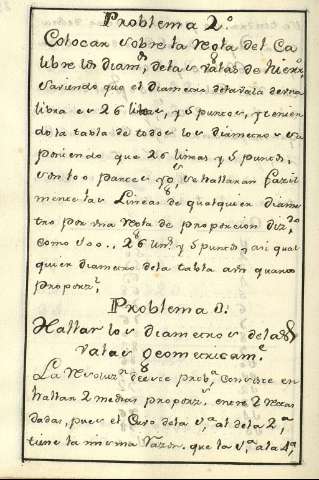 Problema 2.º
Colocar sobre la regla del Ca
libre los diam.os de las valas de hierr.º
saviendo que el diametro de la vala de una
libra es 26 lineas, y 5 puntos, y tenien
do la tabla de todos los diametros su
poniendo que 26 lineas y 5 puntos,
son 100 partes se hallaran facil
mente las Lineas de qualquier diame
tro por una regla de proporcion diz.do
como 100.. 26 lin.s y 5 puntos, asi qual
quier diametro de la tabla a un quarto
proporz.l
Problema 3.
Hallar los diametros de las
valas geometricam.e
La resoluz.n de este prob.a consiste en
hallar 2 medias proporz. entre 2 rectas
dadas, pues el Cuvo de la 1.a al de la 2.a
tiene la misma razon. que la 1.a a la 4.a